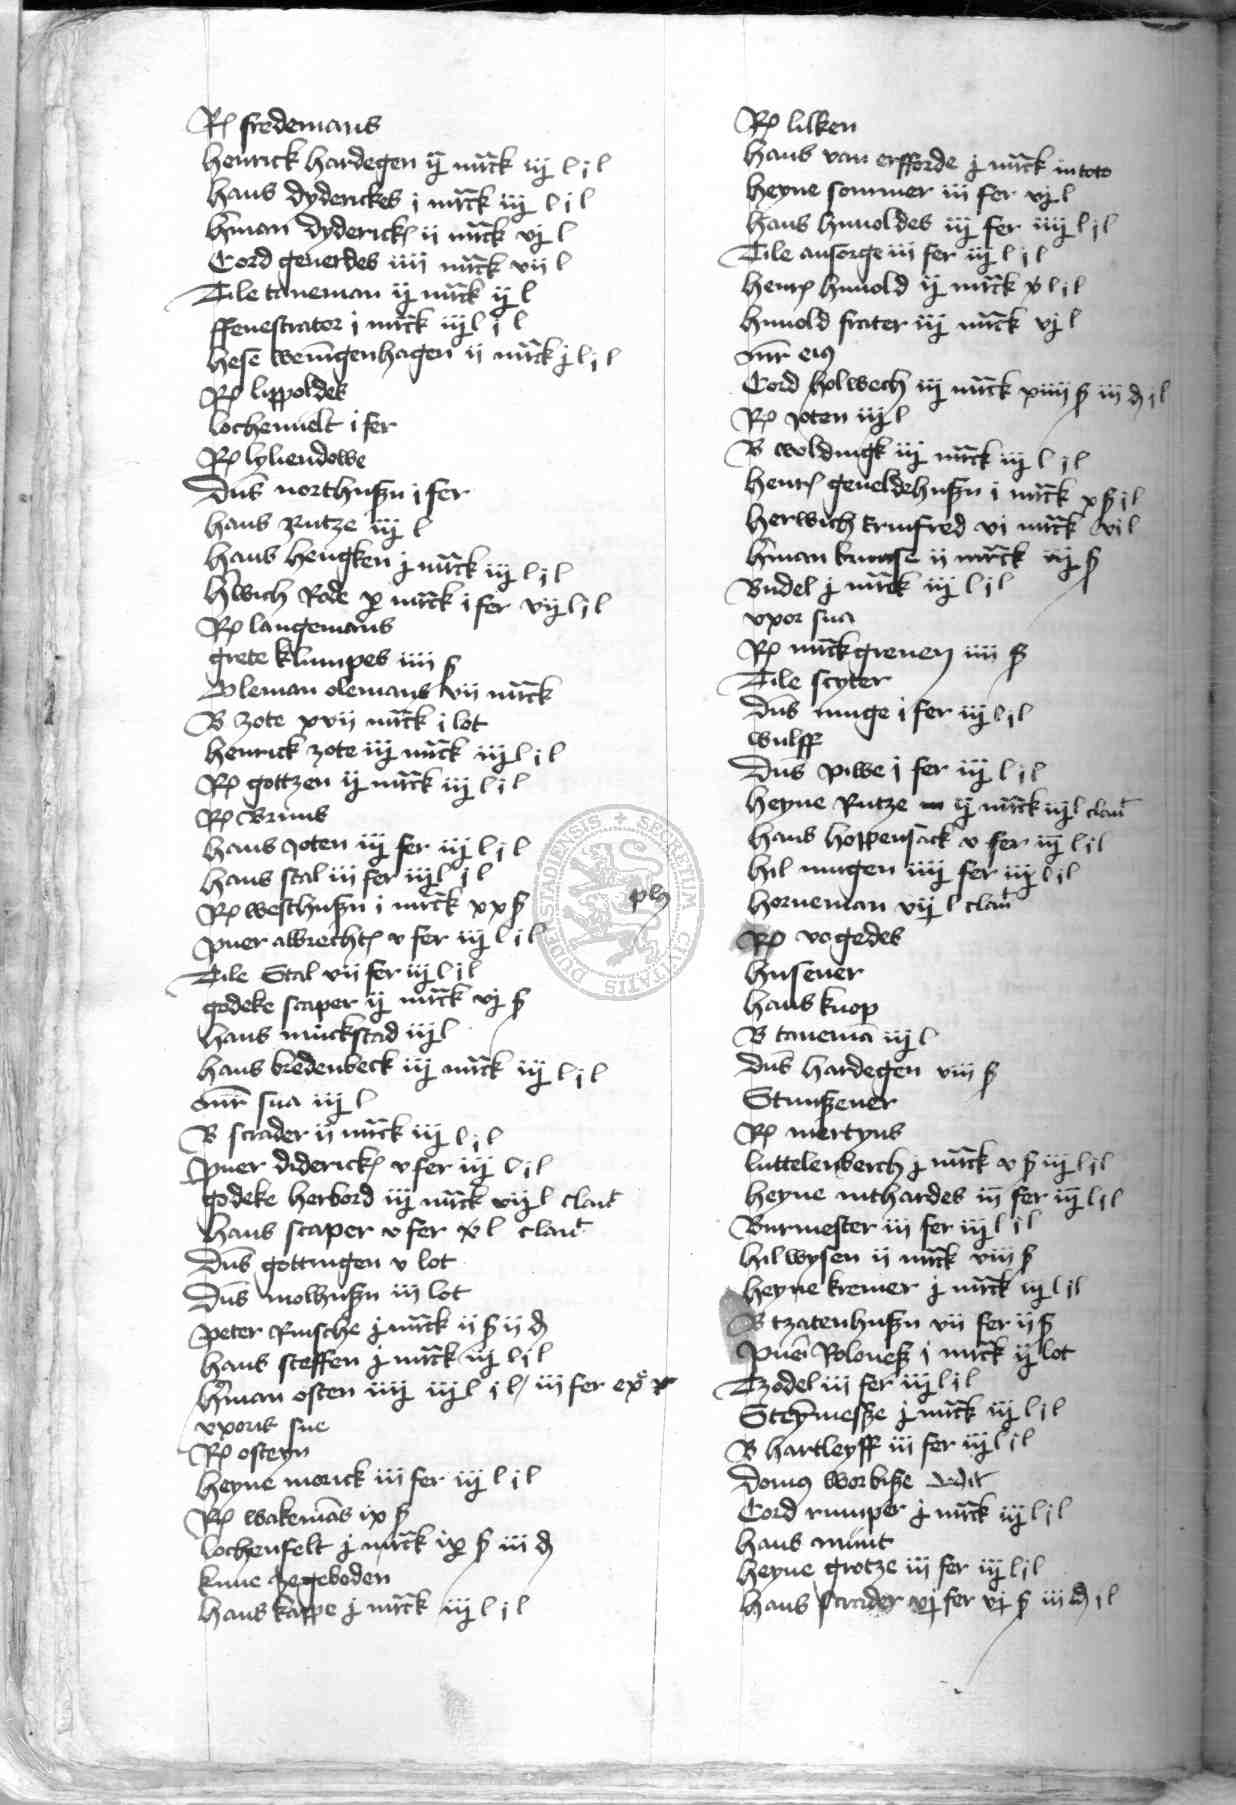 Rel fredemans
Henrick hardegen ij marck iij l j l
Hans dyderickes j marck iij l j l
Herman dyderick ij marck vj l
Cord geuerdes iiij marck vij l
Tile taneman ij marck ij l
ffenestrator j marck iij l j l
Hese weningenhagen ij marck j l j l
Rel lippoldes
lochenuelt j fer
Rel lyliendowe
Dns northusen j fer
Hans Rutze iij l
Hans hengken j marck iij l j l
Hewich Rode x marck j fer vij l j l
Rel langemans
grete klumpes iiij s
Oleman olemans vij marck
B zote xvij marck j lot
Henrick zote iij marck iij l j l
Rel gottzen ij marck iij l j l
Rel Bruns
Hans Joten iij fer iij l j l
Hans stal iij fer iij l j l
Rel westhusen j marck xx s
puer albrecht v fer iij l j l
Tile Stal vij fer iij l j l
godeke scaper ij marck vj s
Hans muckstad iij l
Hans bredenbeck iij marck iij l j l
mr sua iij l
B scrader ij marck iij l j l
puer diderick v fer iij l j l
godeke herbord iij marck vij l
Hans scaper v fer x l
Dns gottingen v lot
Dns molhusen iij lot
peter Rusche j marck ij s ij d
Hans steffen j marck iij l j l
Herman osten iiij iij l j l iij fer
vxoris sue
Rel osteyn
Heyne morick iij fer iij l j l
Rel wakemans ix s
lochenfelt j marck ix s iij d
kune zegeboden
Hans kappe j marck iij l j l
Rel lilken
Hans van erfforde j marck in toto
Heyne sommer iij fer vj l
Hans hunoldes iij fer iiij l j l
Tile ansorge iij fer iij l j l
Henr hunold ij marck x l j l
Hunold frater iij marck vj l
mr eius
Cord holwech iij marck xiiij s iij d j l
Rel Joten iij l
B woldingk iij marck iij l j l
Henr geueldehusen j marck x s j l
Herwich ernfred vj marck vj l
Herman kunse ij marck iij s
Budel j marck iij l j l
vxor sua
Rel marckgreuen iiij s
Tile scyter
Dns runge j fer iij l j l
wulff
Dns piwe j fer iij l j l
Heyne Rutze ij marck iij l
Hans hoppensack v fer iij l j l
Hil mugen iiij fer iij l j l
Horneman vij l
Rel vogedes
Husener
Hans knop
B taneman iij l
Dns hardegen viij s
Stunszener
Rel mertyns
luttelenberch j marck v s iij l j l
Heyne nithardes iij fer iij l j l
Burmester iij fer iij l j l
Hil wysen ij marck viij s
Heyne kremer j marck iij l j l
B tzatenhusen vij fer ij s
puer Rolones j marck ij lot
Tzodel iij fer iij l j l
Steynmesse j marck iij l j l
B hartleyff iij fer iij l j l
Domus worbisze dedit
Cord rumper j marck iij l j l
Hans munt
Heyne grotze iij fer iij l j l
Hans scrader vj fer vj s iij d j l
SECRETUM CIVITATIS DUDERSTADIENSIS